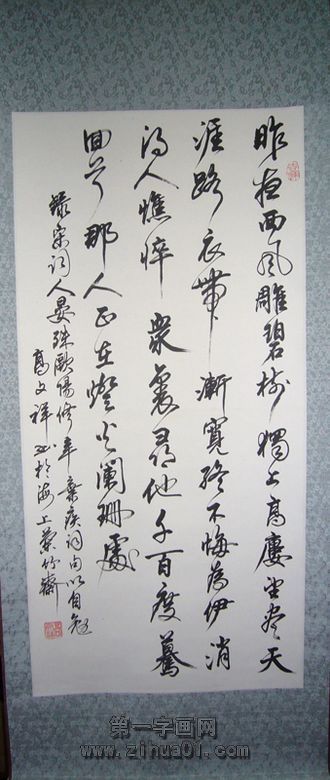 昨夜西風雕碧树獨上高廔望盡天
涯路衣帶漸寬終不悔為伊消
得人憔悴衆裏尋他千百度驀
回首那人正在燈火闌珊處
錄宋詞人晏殊歐陽修辛棄疾詞句以自勉
高文祥书於海上竹齋
第一字画网
www.zihua01.com